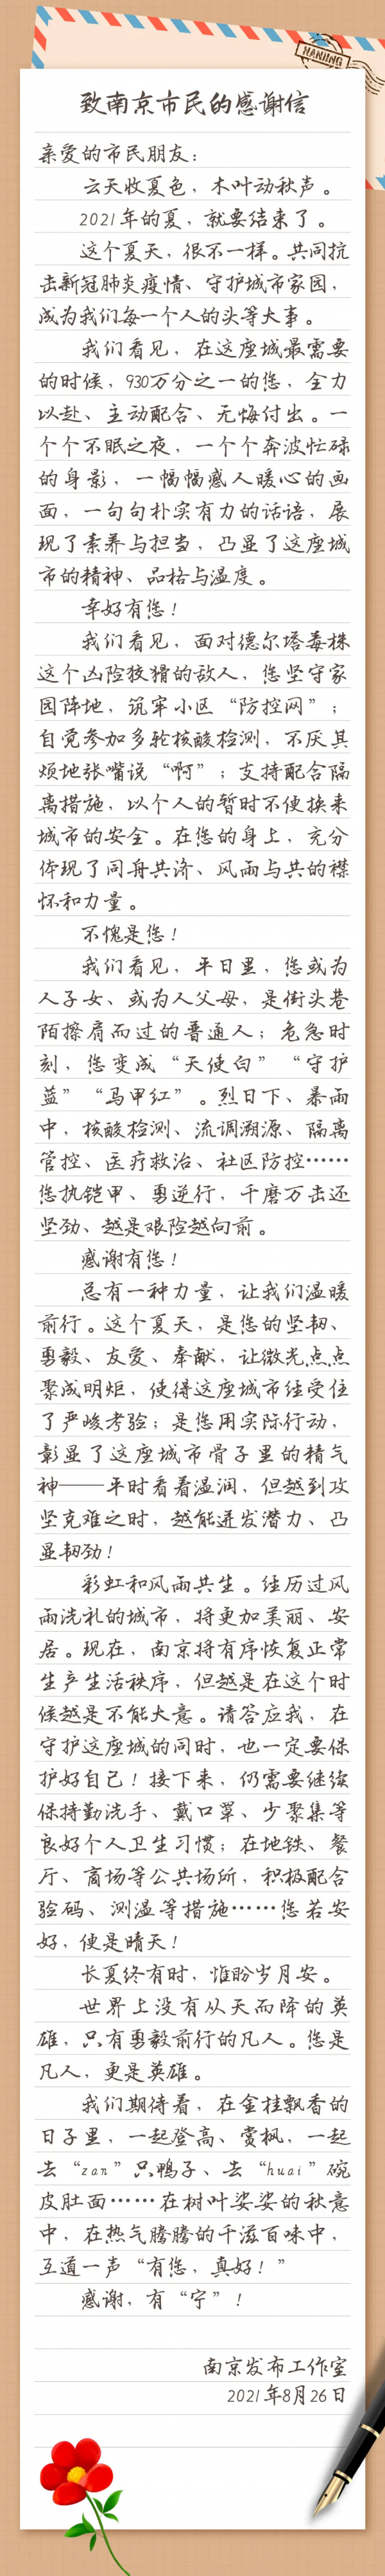 NANJING
致南京市民的感谢信
亲爱的市民朋友：
云天收夏色，木叶动秋声。
2021年的夏，就要结束了。
这个夏天，很不一样。共同抗
击新冠肺炎疫情、守护城市家园，
成为我们每一个人的头等大事。
我们看见，在这座城最需要
的时候，930万分之一的您，全力
以赴、主动配合、无悔付出。一
个个不眠之夜，一个个奔波忙碌
的身影，一幅幅感人暖心的画
面，一句句朴实有力的话语，展
现了素养与担当，凸显了这座城
市的精神、品格与温度。
幸好有您！
我们看见，面对德尔塔毒株
这个凶险狡猾的敌人，您坚守家
园阵地，筑牢小区“防控网”；
自觉参加多轮核酸检测，不厌其
烦地张嘴说“啊”；支持配合隔
离措施，以个人的暂时不便换来
城市的安全。在您的身上，充分
体现了同舟共济、风雨与共的襟
怀和力量。
不愧是您！
我们看见，平日里，您或为
人子女、或为人父母，是街头巷
陌擦肩而过的普通人；危急时
刻，您变成“天使白”“守护
蓝”“马甲红”。烈日下、暴雨
中，核酸检测、流调溯源、隔离
管控、医疗救治、社区防控……
您执铠甲、勇逆行，千磨万击还
坚劲、越是艰险越向前。
感谢有您！
总有一种力量，让我们温暖
前行。这个夏天，是您的坚韧、
勇毅、友爱、奉献，让微光点点
聚成明炬，使得这座城市经受住
了严峻考验；是您用实际行动，
彰显了这座城市骨子里的精气
神——平时看着温润，但越到攻
坚克难之时，越能迸发潜力、凸
显韧劲！
彩虹和风雨共生。经历过风
雨洗礼的城市，将更加美丽、安
居。现在，南京将有序恢复正常
生产生活秩序，但越是在这个时
候越是不能大意。请答应我，在
守护这座城的同时，也一定要保
护好自己！接下来，仍需要继续
保持勤洗手、戴口罩、少聚集等
良好个人卫生习惯；在地铁、餐
厅、商场等公共场所，积极配合
验码、测温等措施……您若安
好，便是晴天！
长夏终有时，惟盼岁月安。
世界上没有从天而降的英
雄，只有勇毅前行的凡人。您是
凡人，更是英雄。
我们期待着，在金桂飘香的
日子里，一起登高、赏枫，一起
去“zan”只鸭子、去“huai”碗
皮肚面……在树叶婆娑的秋意
中，在热气腾腾的千滋百味中，
互道一声“有您，真好！”
感谢，有“宁”！
南京发布工作室
2021年8月26日